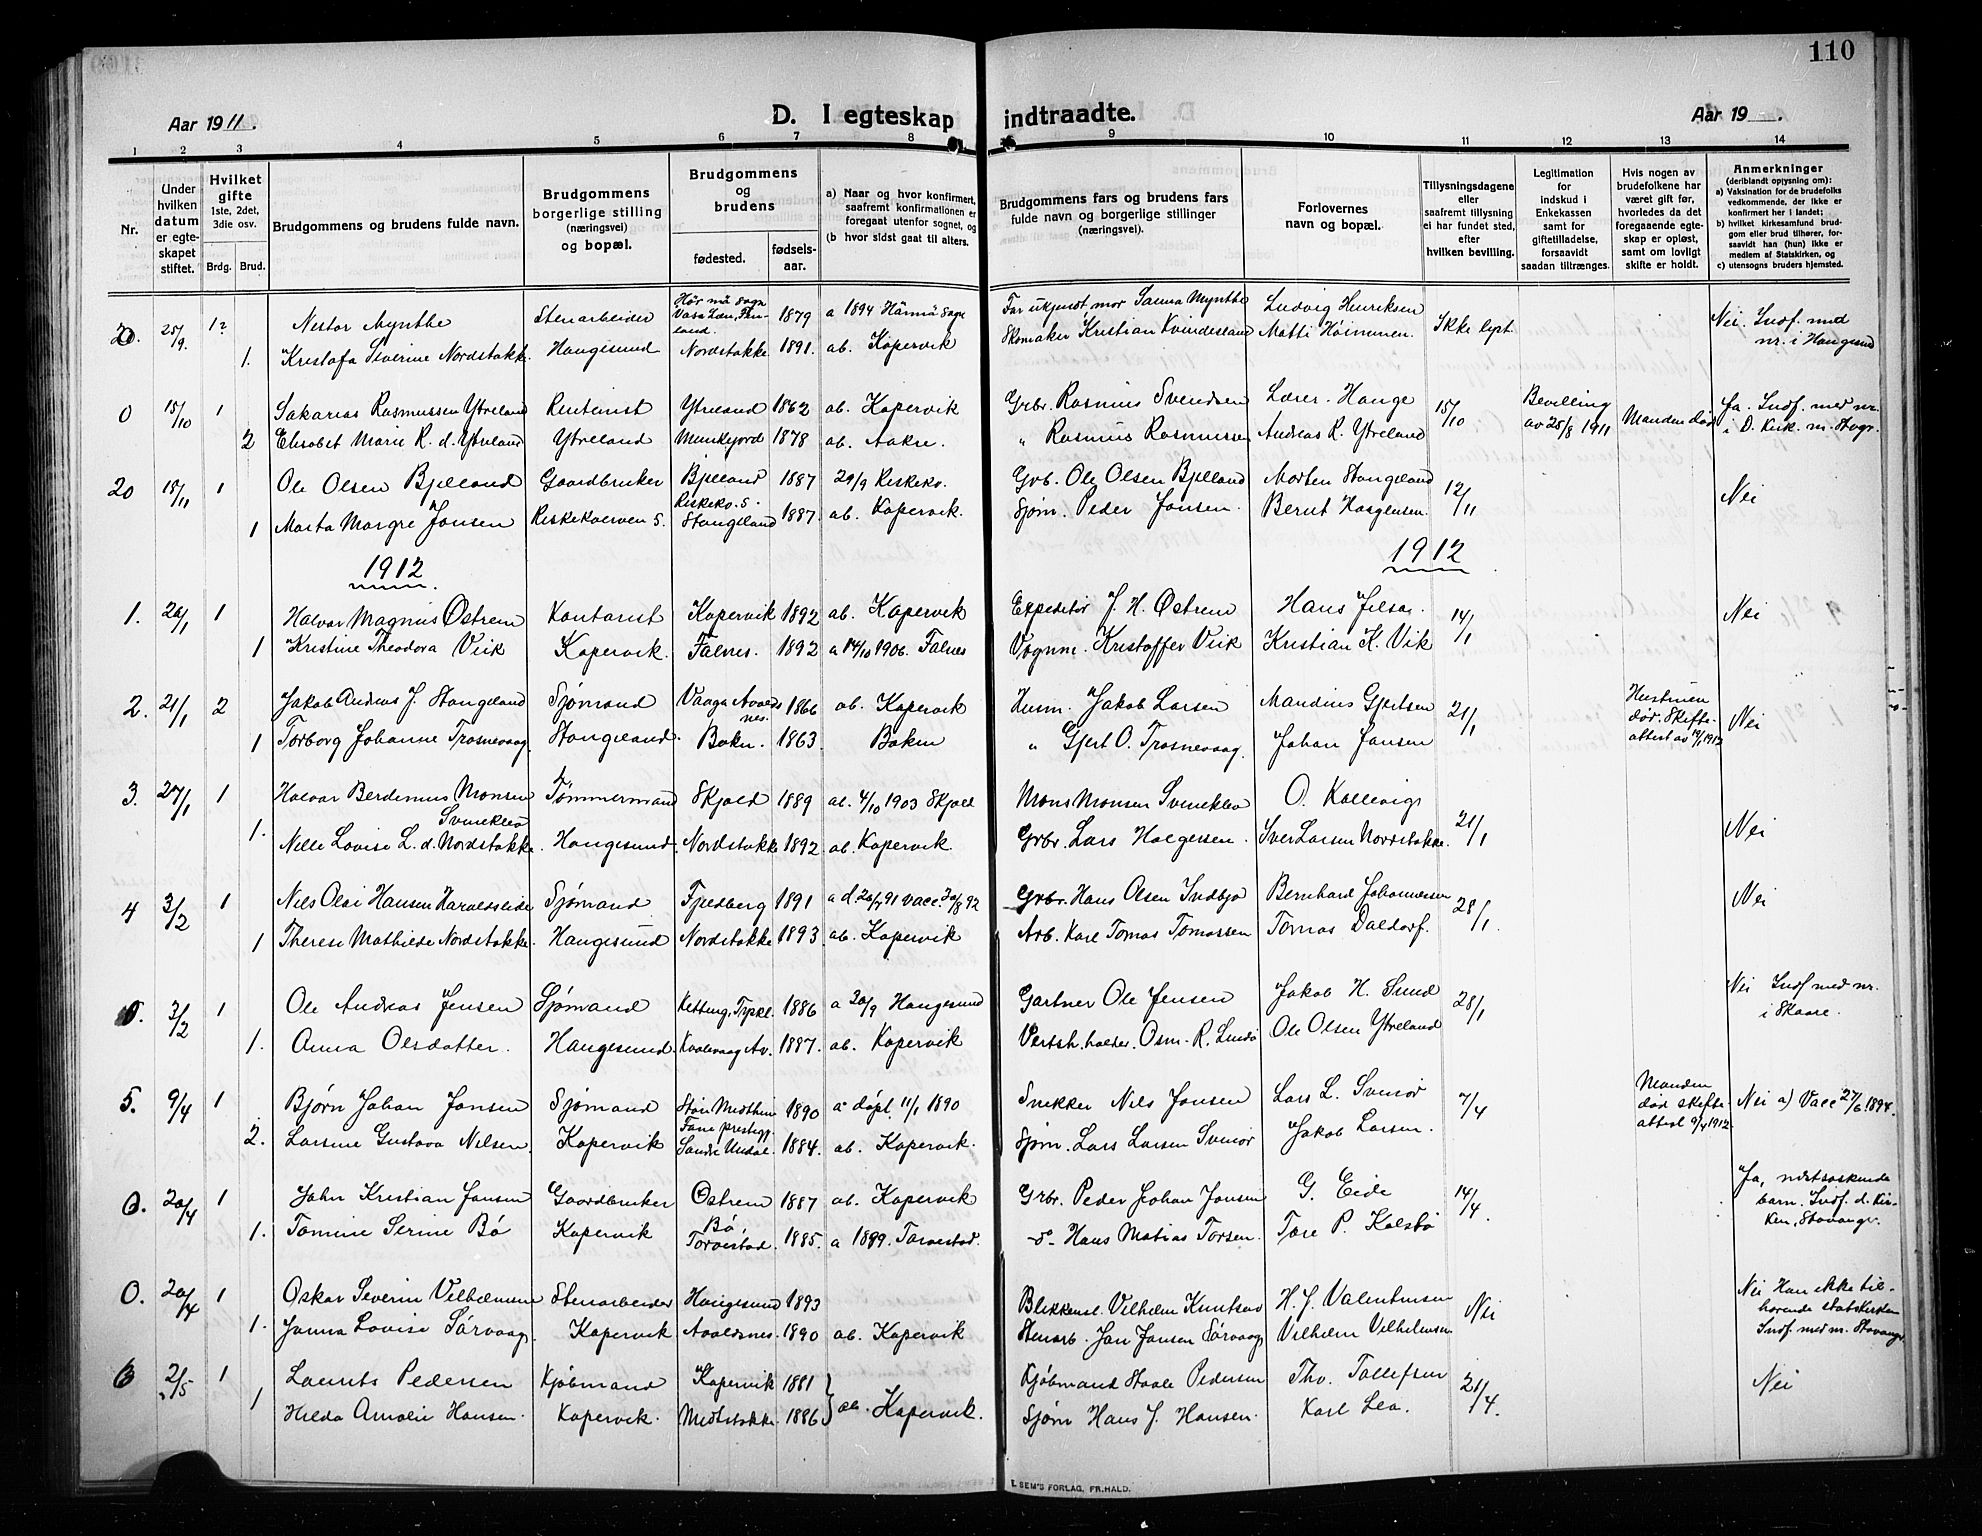 110
Aar 1911.
D. I egteskap indtraadte.
Aar 19
1 2 3 4 5 6 7 8 9 10 11 12 13 14
Nr.
Under hvilken datum er egteskapet stiftet.
Hvilket gifte 1ste, 2det, 3die osv.
Brdg. Brud.
Brudgommens og brudens fulde navn.
Brudgommens borgerlige stilling (næringsvei) og bopæl.
Brudgommens og brudens
fødested.
fødselsaar.
a) Naar og hvor konfirmert, saafremt konfirmationen er foregaat utenfor sognet, og
(b hvor sidst gaat til alters.
Brudgommens fars og brudens fars fulde navn og borgerlige stillinger (næringsvei).
Forlovernes navn og bopæl.
Tillysningsdagene eller saafremt tillysning ei har fundet sted, efter hvilken bevilling.
Legitimation for indskud i Enkekassen samt for giftetilladelse, forsaavidt saadan tiltrænges.
Hvis nogen av brudefolkene har været gift før, hvorledes da det foregaaende egteskap er opløst, samt om lovligt skifte er holdt.
Anmerkninger (deriblandt opysning om):
a) Vaksination for de brudefolks vedkommende, der ikke er konfirmert her i landet;
b) hvilket kirkesamfund brudgom eller brud tilhører, forsaavidt han (hun) ikke er medlem af Statskirken, og
c) utensogns bruders hjemsted.
25/9. 1? Nestor Mynthe Stenarbeider Vasa Læn, Finland. 1879 a 1894 Sogn Far ukjendt, mor Sanna Mynthe Ludvig Henriksen Ikke lyst Nei. Indf. med
1. Kristofa Severine Nordstokke. Haugesund Nordstokke 1891. ab. Kopervik Skomaker Kristian Kvindesland Matti nr. i Haugesund
0 15/10 1 Sakarias Rasmussen Ytreland Rentenist Ytreland 1862 ab. Kopervik Grbr. Rasmus Svendsen Lærer Hauge 15/10 Bevilling Manden død Ja. Indf. med nr.
2 Elisabet Marie R. d. Ytreland Ytreland Munkejord 1878 ab. Aakre. " Rasmus Rasmussen Andreas R. Ytreland av 25/8 1911 i D. Kirk. m. Stvgr.
20 15/11 1 Ole Olsen Bjelland Gaardbruker Bjelland 1887 29/9 Reskeko. Grb. Ole Olsen Bjelland Morten Stangeland 12/11 Nei
1 Marta Margre Jonsen S. Stangeland 1887. ab. Kopervik. Sjøm. Peder Jonsen. Bernt Haagensen.
1912 1912
1. 26/1 1 Halvar Magnus Østrem Kontorist Kopervik 1892 ab. Kopervik Expeditør J. H. Østrem Hans Jelsa. 14/1 Nei
1 Kristine Theodora Vik Kopervik. Falnes. 1892 a 14/10 1906. Falnes Vognm. Kristoffer Vik Kristian K. Vik
2. 21/1 2 Jakob Andreas J. Stangeland Sjømand Vaaga Avaldsnes. 1866 ab. Kopervik Husm. Jakob Larsen Mandius Gjertsen 21/1 Hustruen død. Skifteattest av 19/1 1912 Nei
1 Torborg Johanne Trosnevaag Stangeland Bokn. 1863. Bokn " Gjert O. Trosnevaag Johan Jansen
3. 27/1 1 Halvar Berdinius Monsen Svineklev Tømmermand Skjold 1889 ab. 4/10 1903 Skjold Mons Monsen Svineklev O. Kallevig 21/1 Nei
1. Nelle Lovise L. d. Nordstokke. Haugesund. Nordstokke 1892. ab. Kopervik. Grbr. Lars Helgesen. Iver Larsen Nordstokke.
4 3/2 1 Nils Olai Hansen Haraldseide Sjømand Fjedberg 1891 a d. 20/7 91 vacc. 30/8 92 Grbr. Hans Olsen Indbjo Bernhard Johannessen 28/1. Nei
1 Therese Mathilde Nordstokke. Haugesund Nordstokke 1893 ab. Kopervik Arb. Karl Tomas Tomassen Tomas Daldorf.
0. 3/2 1 Ole Andreas Jensen Sjømand Ketting, Tyskl. 1886 a 30/9 Haugesund Gartner Ole Jensen Jakob H. Sund 28/1 Nei Indf med nr.
1. Anna Olsdatter. Haugesund. Kvalevaag Av. 1887. ab. Kopervik Vertsh. holder. Osm. R. Lindø Ole Olsen Ytreland i Skaare.
5. 9/4 1 Bjørn Johan Jansen Sjømand 1890 a døpt. 11/1 1890 Snekker Nils Jonsen Lars L. Svinør 7/4 Manden død skifteattest 9/4 1912. Nei a) Vacc 27/6 1894.
2. Larsine Gustava Nilsen. Kopervik Søndre Undal. 1884. ab. Kopervik. Sjøm. Lars Larsen Svinør Jakob Larsen.
0. 20/4 1 John Kristian Jonsen Gaardbruker Østrem 1887 ab. Kopervik Grbr. Peder Johan Jonsen G. Eide 14/4. Ja, næstsøskendebarn. Indf. d. Kirken, Stavanger.
1. Tomine Serine Bø Kopervik Bø, Torvestad. 1885. a 1899. Torvestad. -o- Hans Matias Torsen. Tore P. Kolstø
0. 20/4 1 Oskar Severin Vilhelmsen Stenarbeider Haugesund 1893 Blikkensl. Vilhelm Knutsen H. J. Valentinsen Nei Nei Han ikke tilhørende statskirken
1. Janna Lovise Sørvaag. Kopervik Avaldsnes. 1890 ab. Kopervik Stenarb. Jan Jansen Sørvaag Vilhelm Vilhelmsen. Indf. med nr. Stavanger
6 2/5 1 Laurits Pedersen Kjøbmand Kopervik 1881 ab. Kopervik. Kjøbmand Staale Pedersen Tho. Tollefsen 21/4. Nei
1 Hilda Amalie Hansen. Kopervik. Medstokke 1886 Sjøm Hans J. Hansen. Karl Lea.
E. SEM'S FORLAG, FR.HALD.